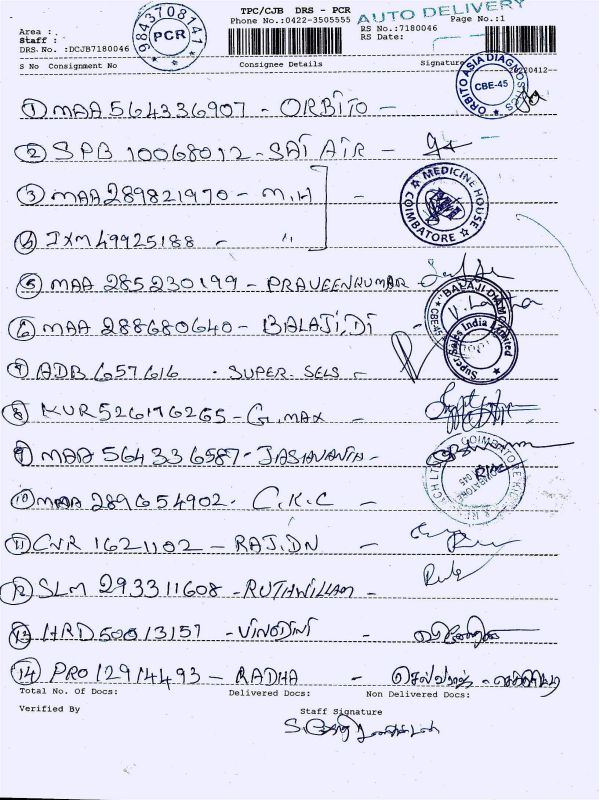 TPC/CJB DRS - PCR
AUTO DELIVERY
Area :
Phone No.:0422-3505555
Page No.:1
Staff :
RS No.:7180046
DRS No. :DCJB7180046
RS Date:
9843708141
PCR
S No Consignment No Consignee Details Signature
ORBITO ASIA DIAGNOSTICS
CBE-45
1 MAA 564336907 - ORBITO -
2 SPB 10068012 - SAI AIR -
3 MAA 289821970 - M.H -
MEDICINE HOUSE
COIMBATORE
4 IXM 49925188 - "
5 MAA 285230199 - PRAVEENKUMAR -
6 MAA 288680640 - BALAJI.DI -
Super Sales India Limited
7 ADB 657616 - SUPER-SELS -
8 KUR 526176265 - G.MAX -
9 MAA 564336587 - JASHVANTH -
10 MAA 289654902 - C.K.C -
11 CNR 1621102 - RAJ.DN -
12 SLM 293311608 - RUTHWILLAM -
13 HRD 50013157 - VINODINI -
14 PRO 12914493 - RADHA -
Total No. Of Docs: Delivered Docs: Non Delivered Docs:
Verified By Staff Signature